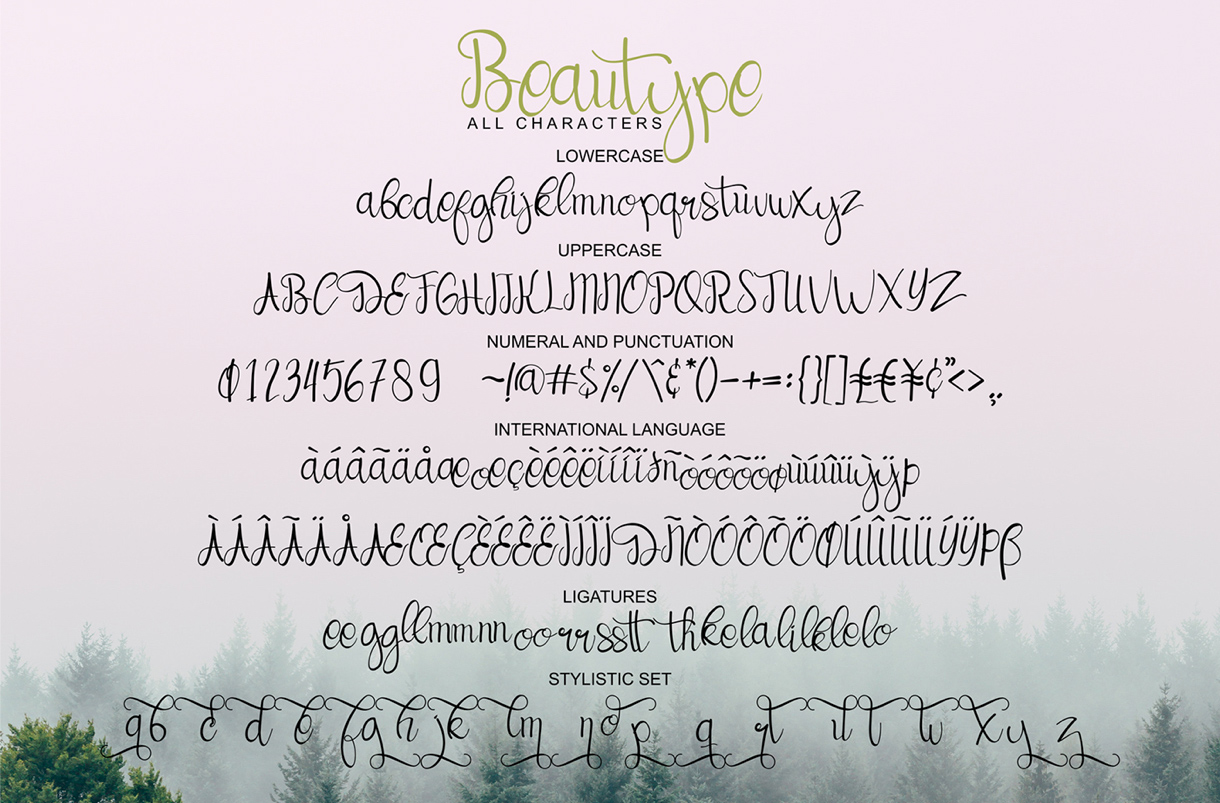 Beautype
ALL CHARACTERS
LOWERCASE
abcdefghijklmnopqrstuvwxyz
UPPERCASE
ABCDEFGHIJKLMNOPQRSTUVWXYZ
NUMERAL AND PUNCTUATION
0123456789 ~!@#$%/\^&*()-+=:{}[]£€¥¢"<>,;.
INTERNATIONAL LANGUAGE
àáâãäåæœçèéêëìíîïðñòóôõöøùúûüỳýÿþ
ÀÁÂÃÄÅÆŒÇÈÉÊËÌÍÎÏÐÑÒÓÔÕÖØÙÚÛÜÝŸÞß
LIGATURES
eeggllmmnnoorrssttthkelalilklelo
STYLISTIC SET
ab c d e fg h jk lm n o p q r t u v w x y z